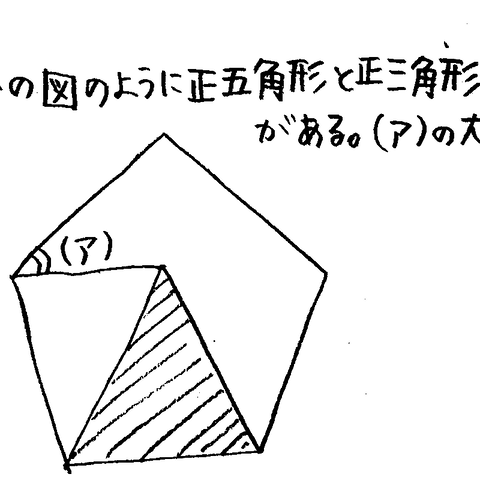 の図のように正五角形と正三角形
がある。(ア)の大
(ア)